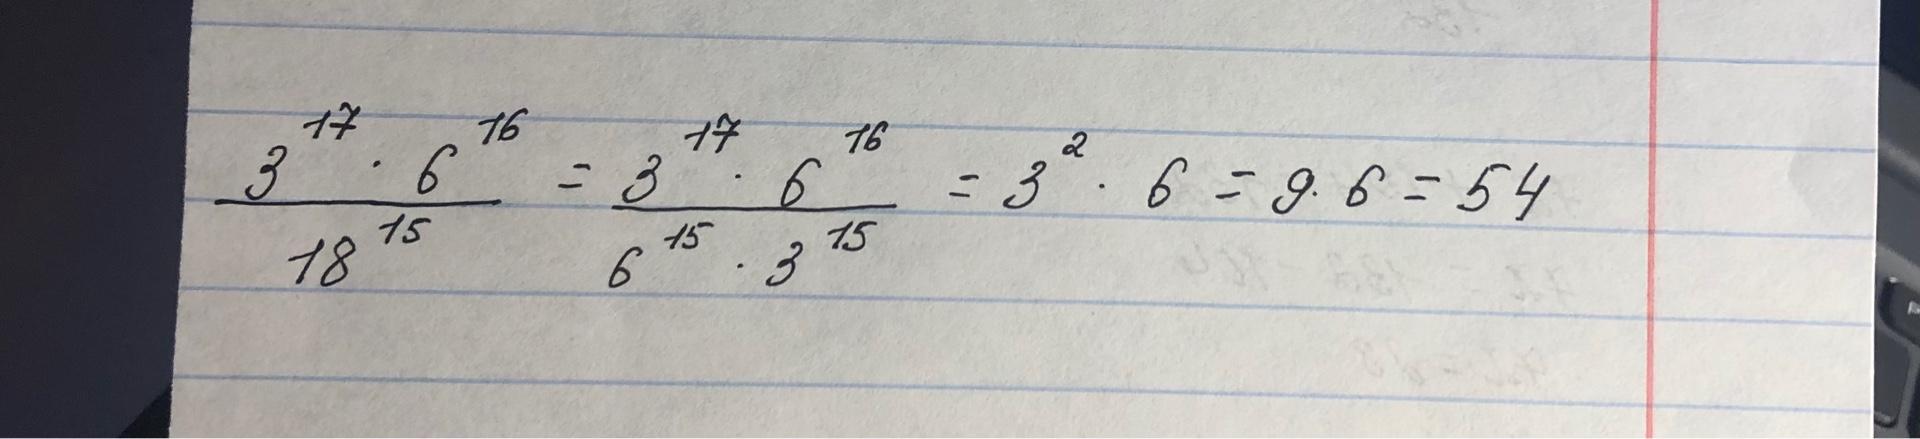 3^17 · 6^16 / 18^15 = 3^17 · 6^16 / 6^15 · 3^15 = 3^2 · 6 = 9 · 6 = 54